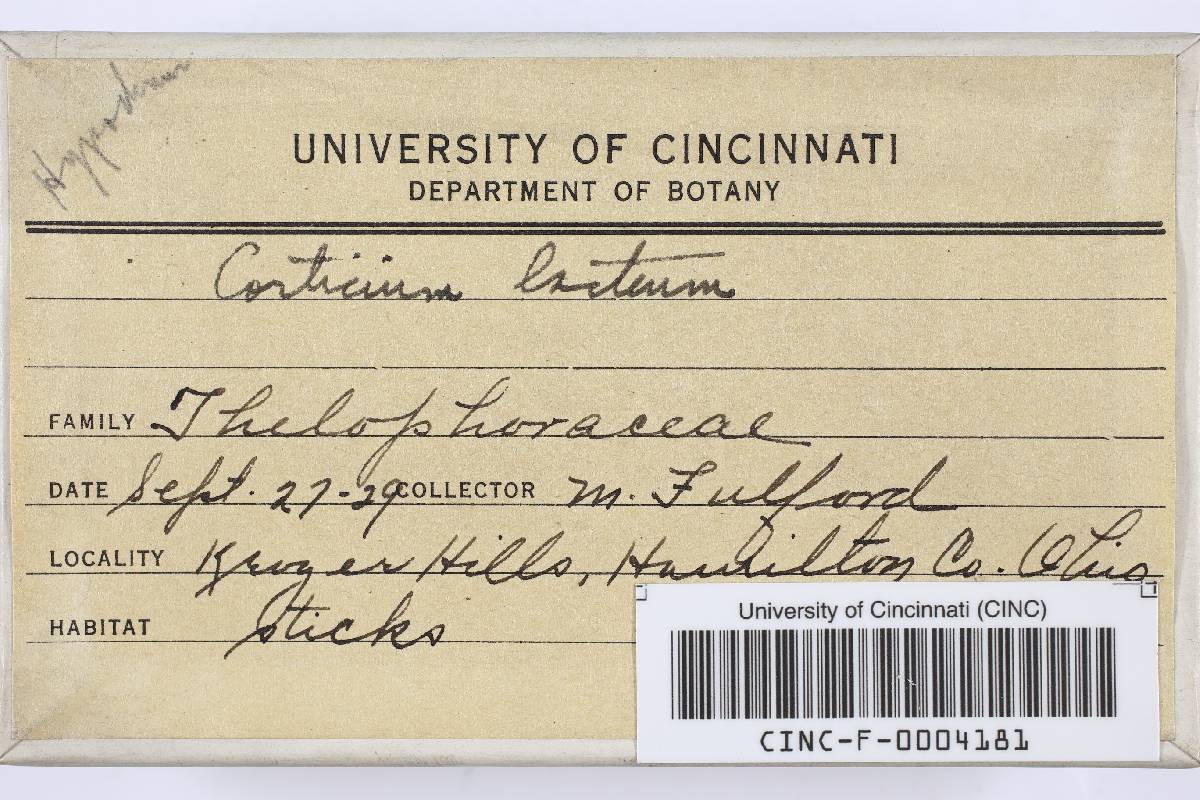 UNIVERSITY OF CINCINNATI
DEPARTMENT OF BOTANY
Corticium lacteum
FAMILY Thelophoraceae
DATE Sept. 27-29 COLLECTOR M. Fulford
LOCALITY Kroger Hills, Hamilton Co. Ohio
HABITAT sticks
University of Cincinnati (CINC)
CINC-F-0004181